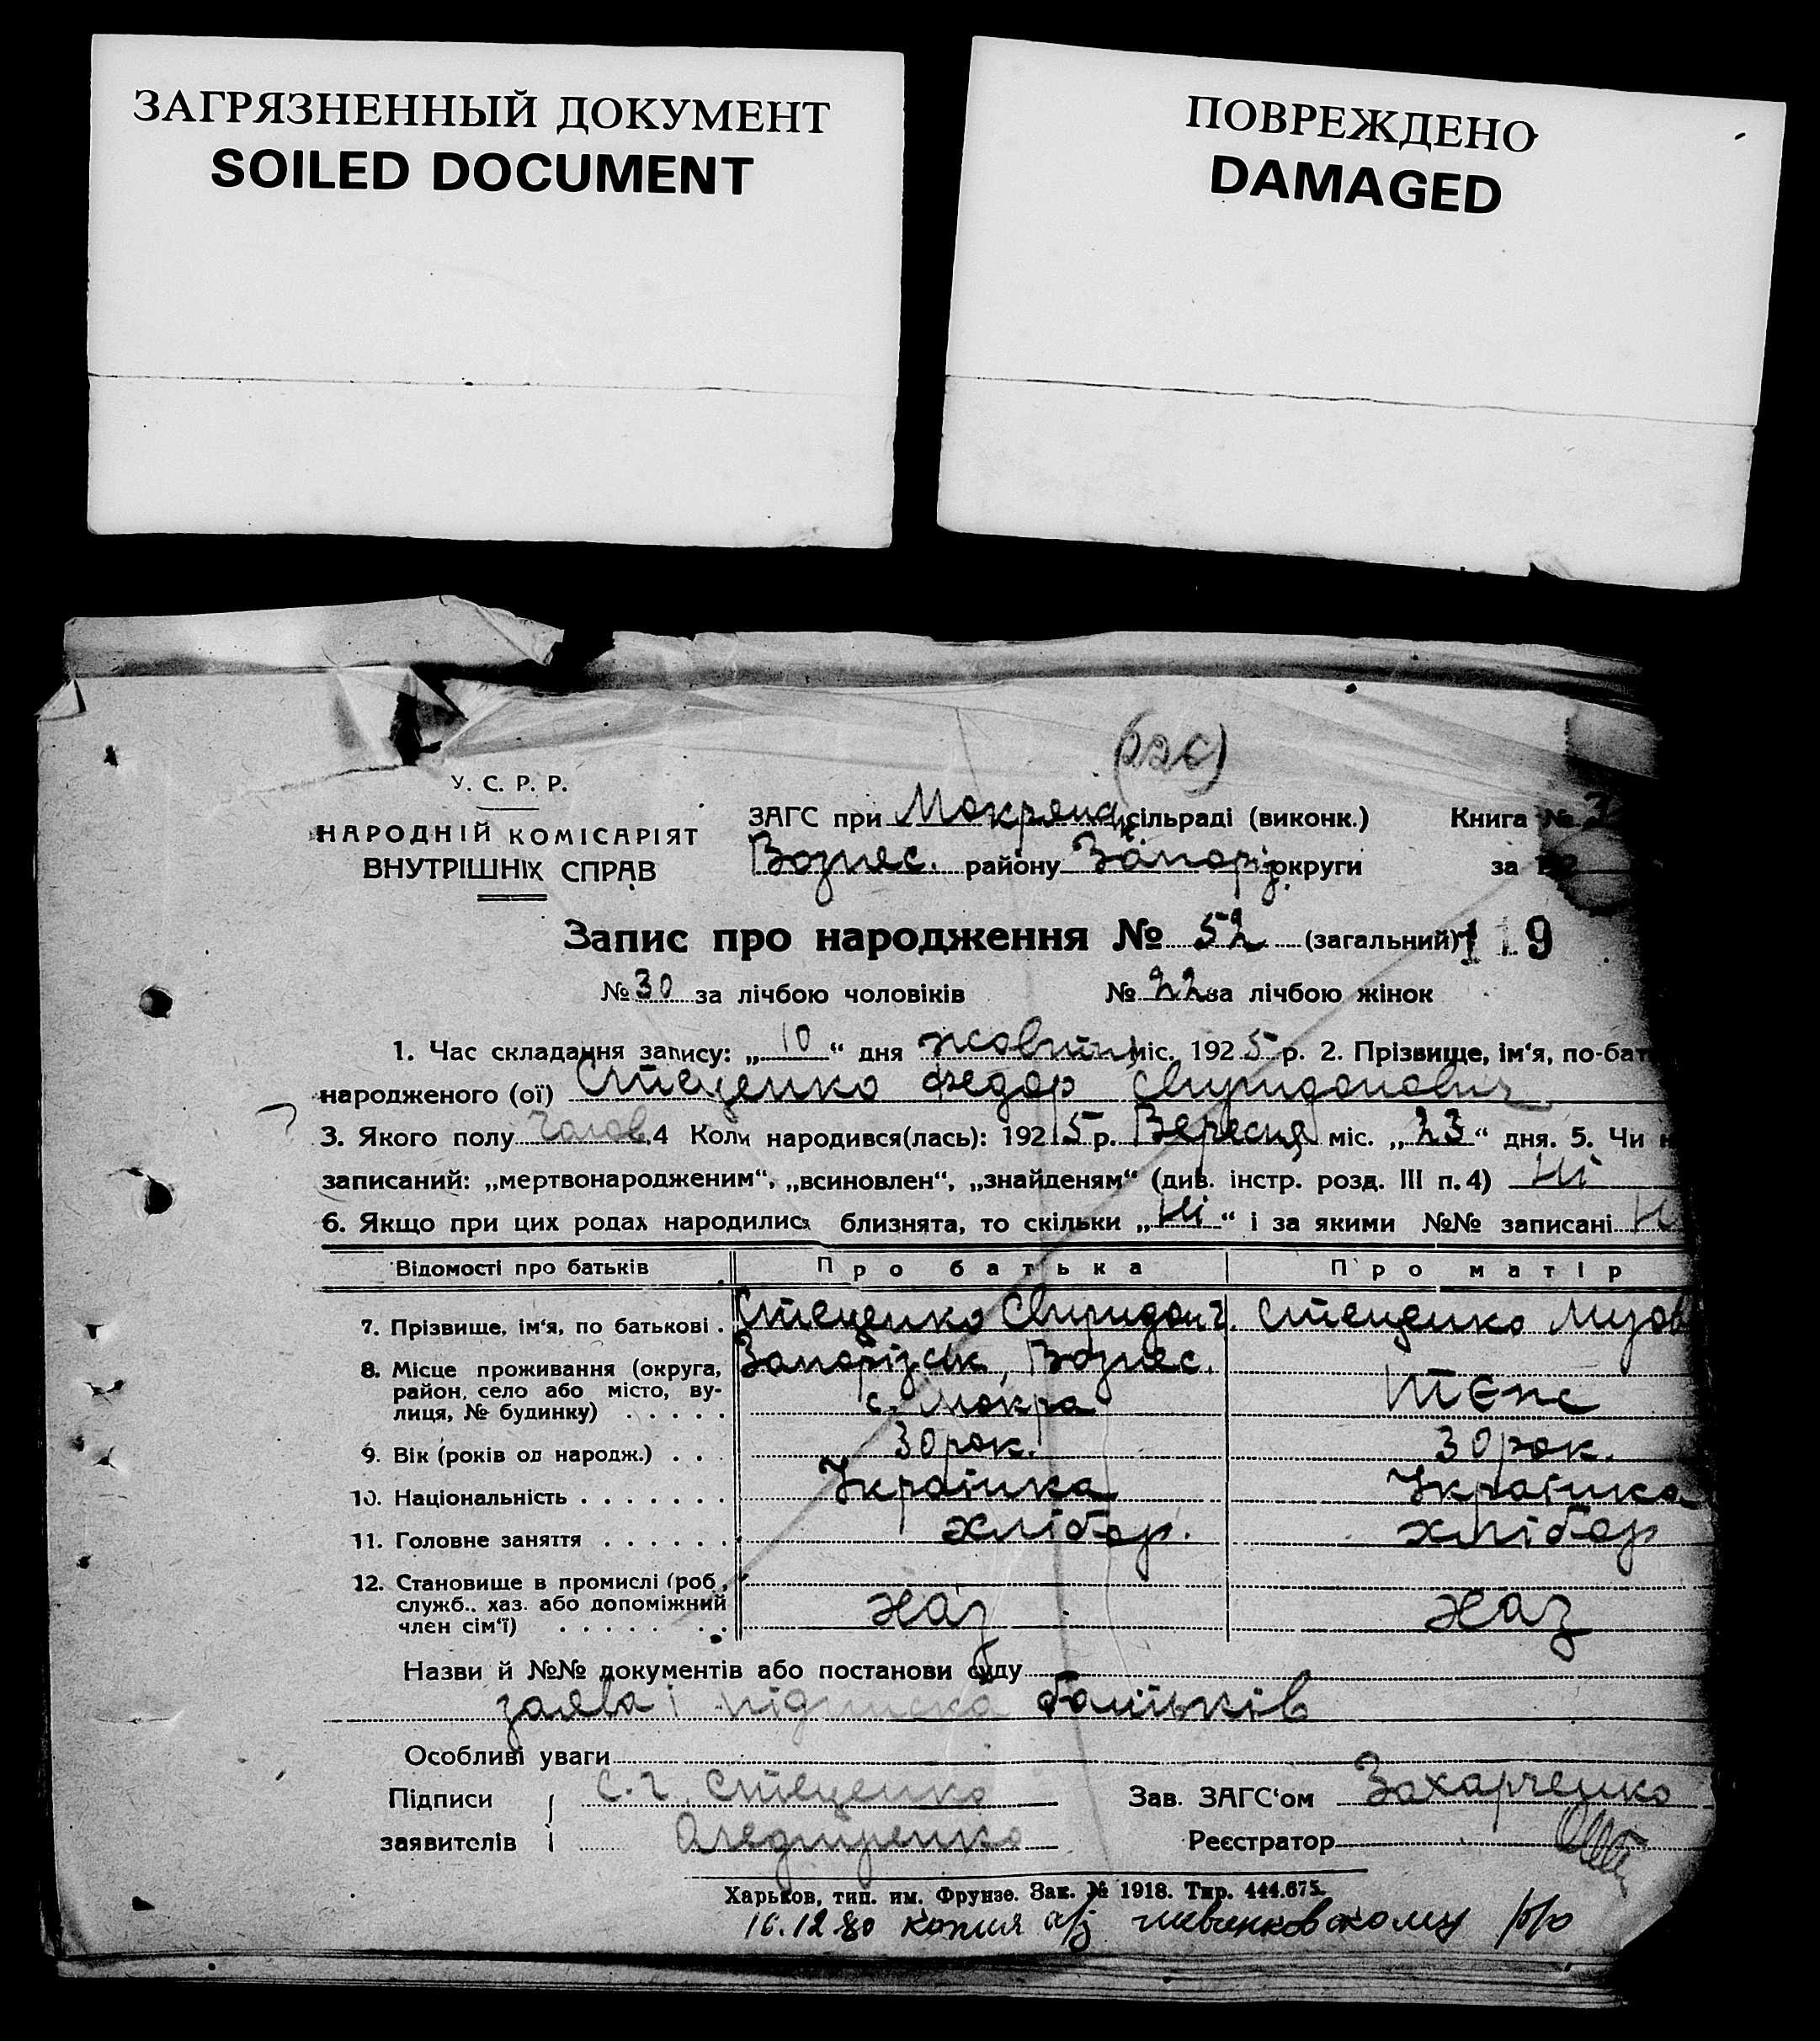 ЗАГРЯЗНЕННЫЙ ДОКУМЕНТ
SOILED DOCUMENT
ПОВРЕЖДЕНО
DAMAGED
У. С. Р. Р.
НАРОДНІЙ КОМІСАРІЯТ
ВНУТРІШНІХ СПРАВ
ЗАГС при Мокрянск сільраді (виконк.) Книга № 3
Вознес. району Запоріз. округи за 192
Запис про народження № 52 (загальний) 119
№ 30 за лічбою чоловіків № 22 за лічбою жінок
1. Час складання запису: „10“ дня жовтня міс. 1925 р. 2. Прізвище, ім‘я, по-бат
народженого (ої) Стеценко Федор Свиридонович
3. Якого полу чолов. 4 Коли народився(лась): 1925 р. Вересня міс. „23“ дня. 5. Чи н
записаний: „мертвонародженим“, „всиновлен“, „знайденям“ (див. інстр. розд. III п. 4) Ні
6. Якщо при цих родах народились близнята, то скільки „Ні“ і за якими №№ записані Н
Відомості про батьків Про батька Про матір
7. Прізвище, ім‘я, по батькові . Стеценко Свиридон Г. Стеценко
8. Місце проживання (округа, Запорізськ, Вознес.
район, село або місто, ву-
лиця, № будинку) . . . . . с. Мокра тєпс
9. Вік (років од народж.) . . . 30 рок. 30 рок.
10. Національність . . . . . . . Українка Українка
11. Головне заняття . . . . . . хлібор. хлібор
12. Становище в промислі (роб.,
служб., хаз. або допоміжний
член сім‘ї) . . . . . . . хаз хаз
Назви й №№ документів або постанови суду
заява і підписка батьків
Особливі уваги
Підписи С. Г. Стеценко Зав. ЗАГС‘ом Захарченко
заявителів Реєстратор
Харьков, тип. им. Фрунзе. Зак. № 1918. Тир. 444.675.
16.12.80 копия шевченковскому р/о